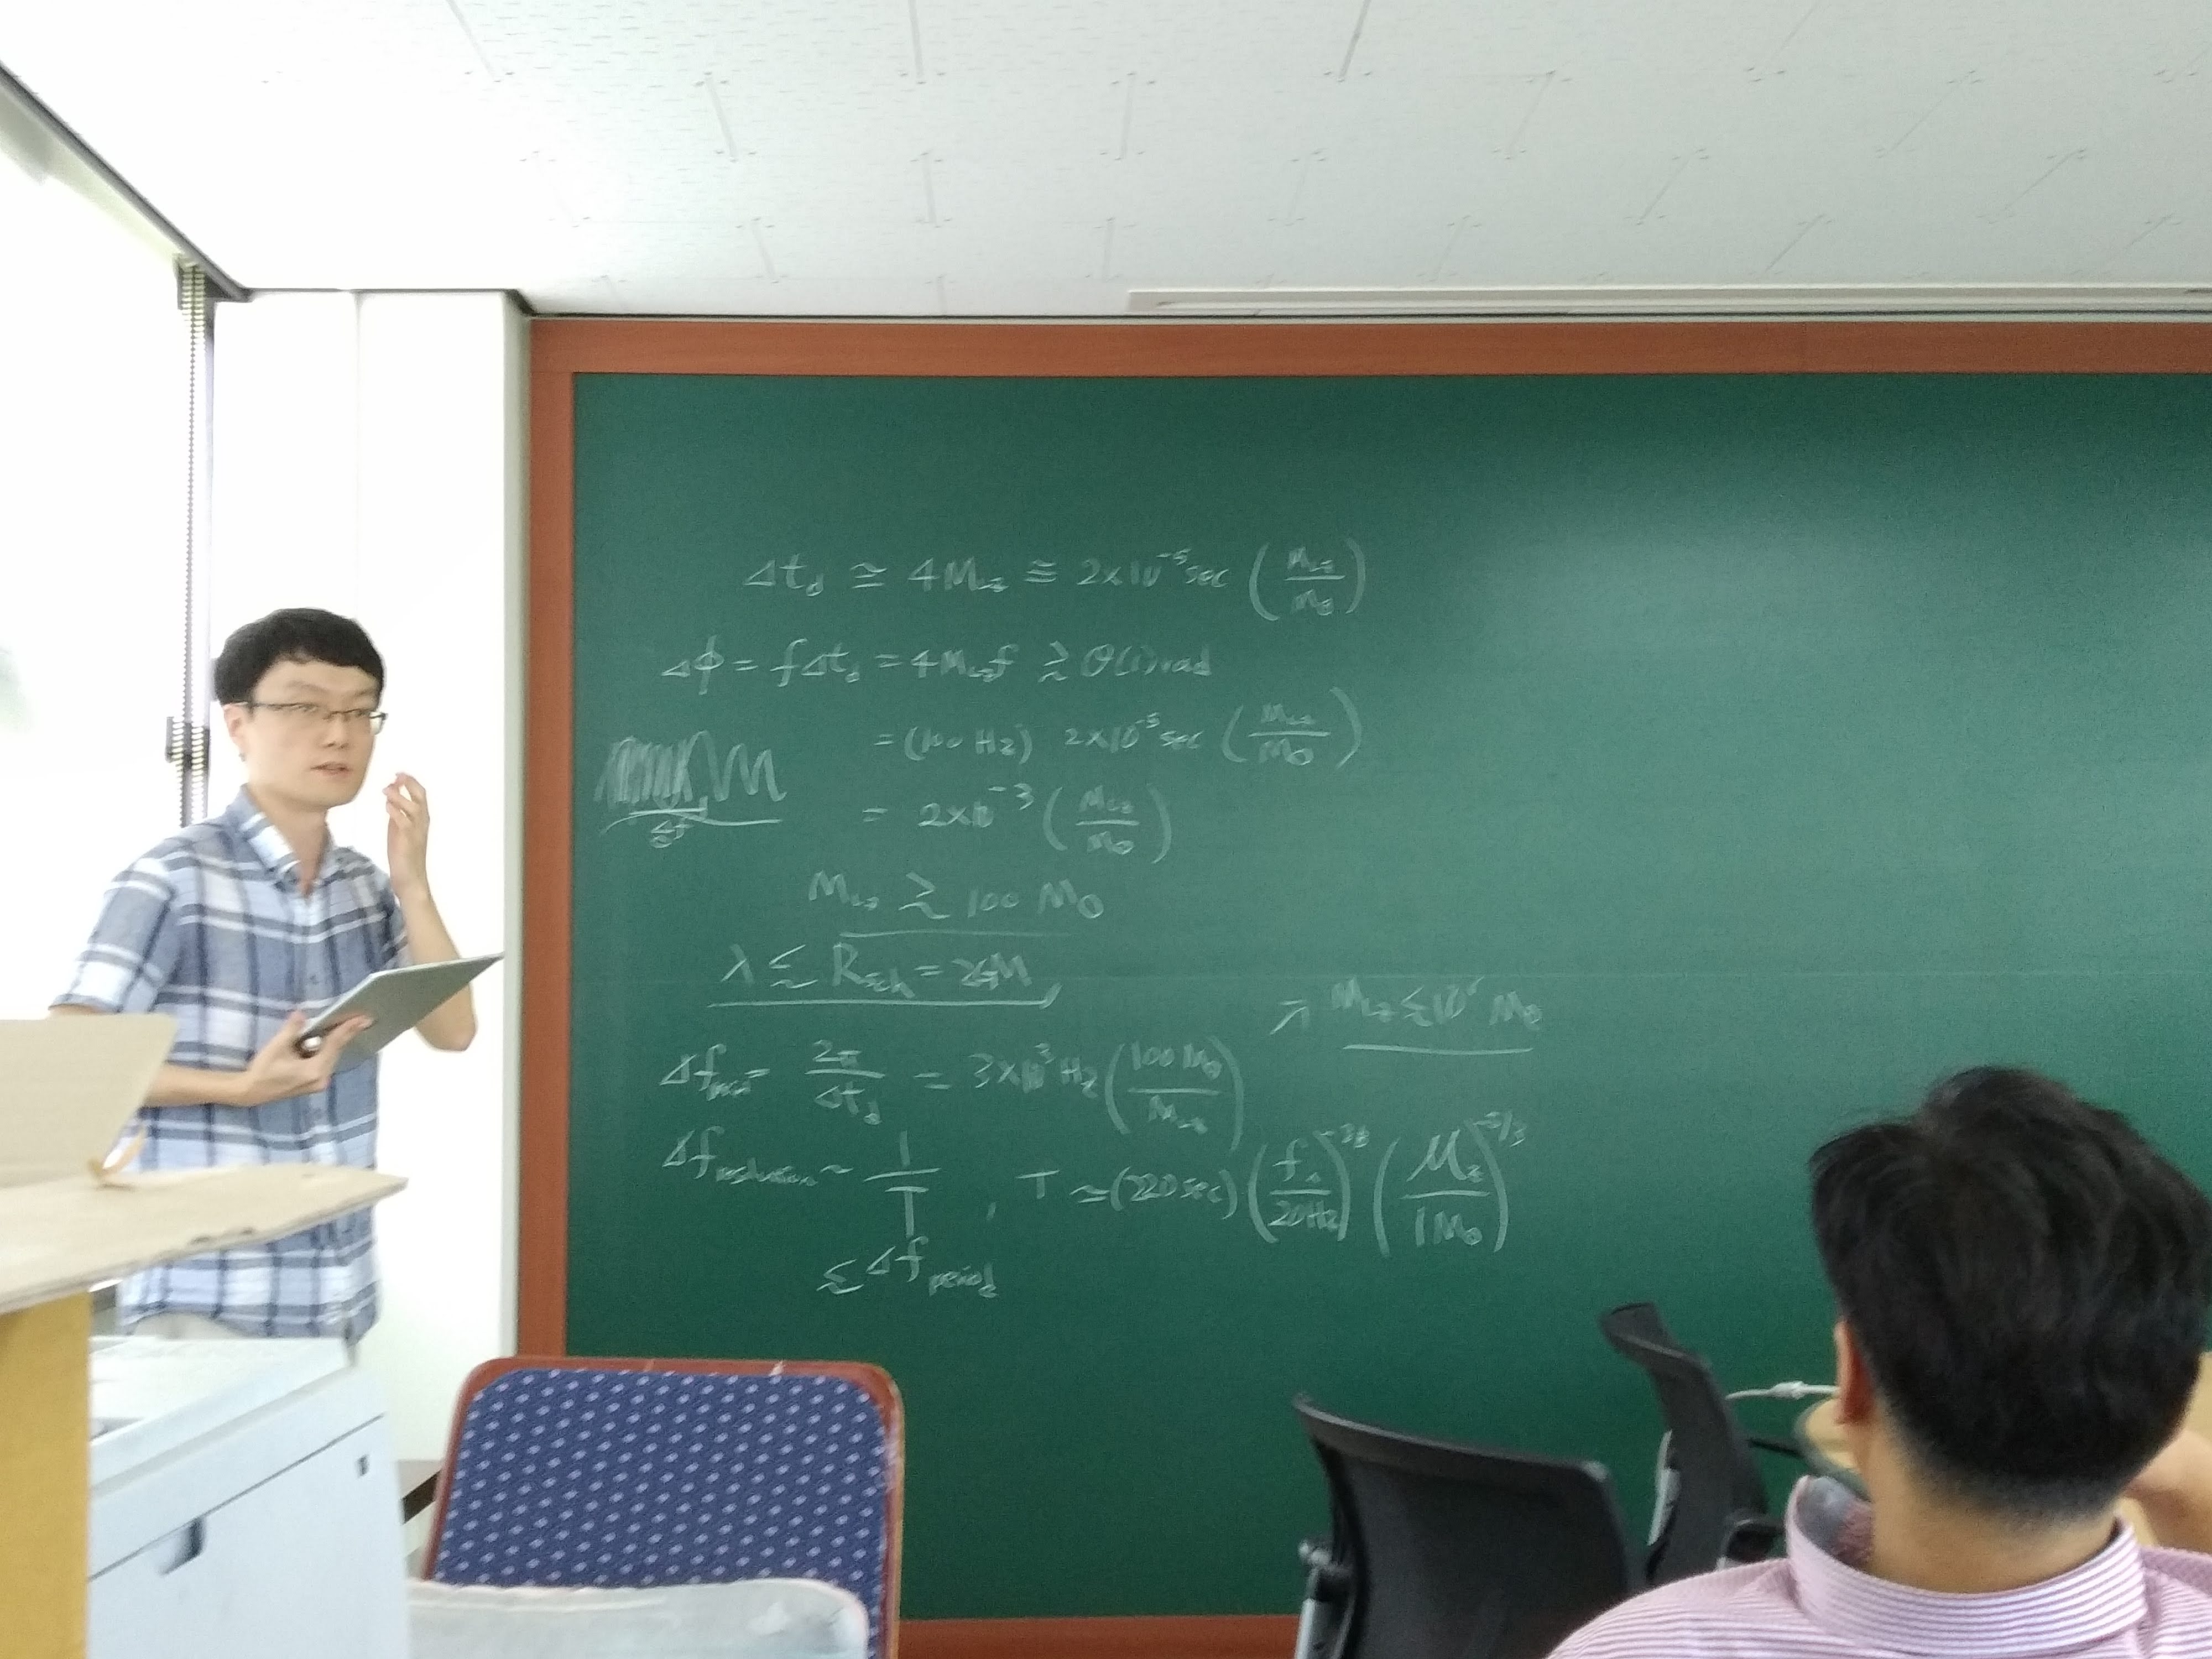 Δt_d ≃ 4M_Lz ≅ 2×10^-5 sec (M_Lz/M_⊙)
Δφ = fΔt_d = 4M_Lz f ≳ O(1) rad
= (100 Hz) 2×10^-5 sec (M_Lz/M_⊙)
= 2×10^-3 (M_Lz/M_⊙)
Δf
M_Lz ≳ 100 M_⊙
λ ≲ R_Sch = 2GM
↗ M_Lz ≲ M_⊙
Δf = 2π/Δt_d = 3×10^3 Hz (100 M_⊙/M_Lz)
Δf_resolution ~ 1/T , T ≃ (220 sec) (f/20Hz)^-8/3 (M_z/1M_⊙)^-5/3
≲ Δf_period